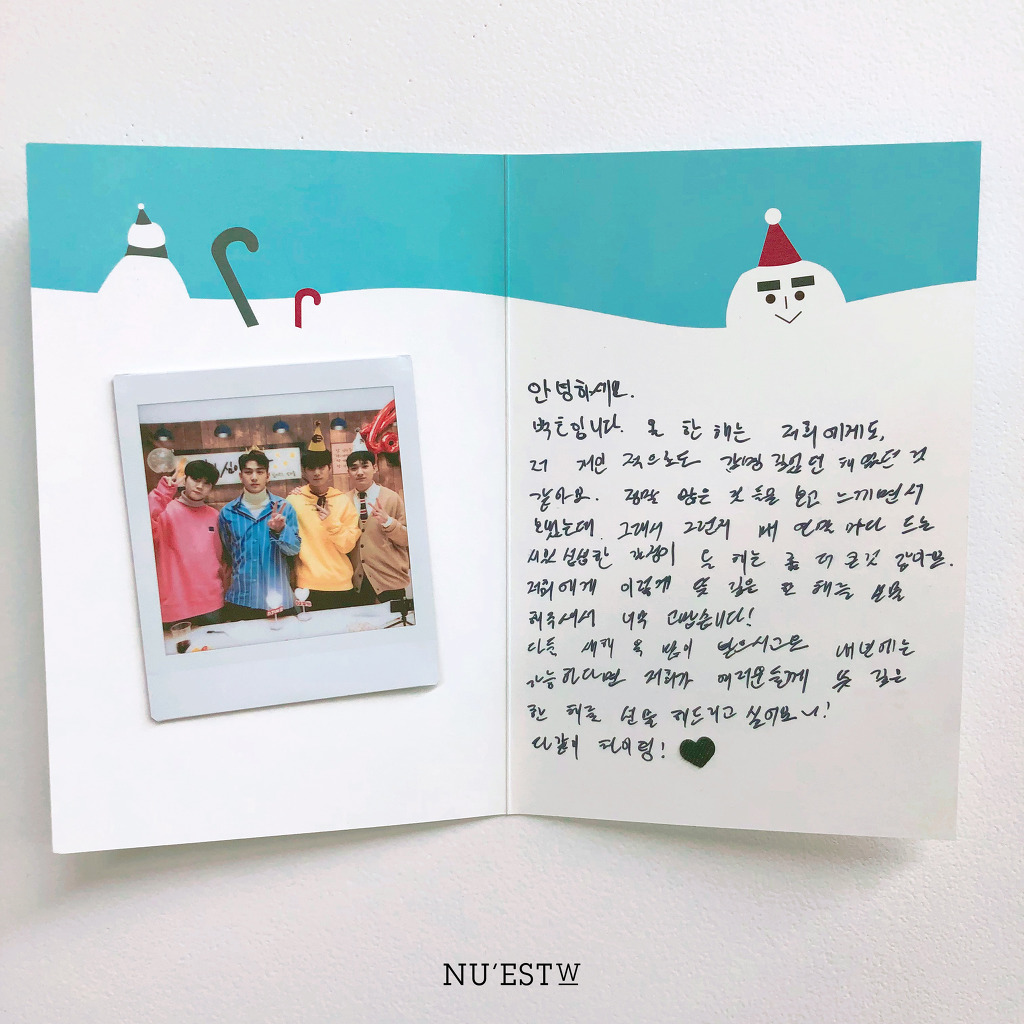 안녕하세요.
백호입니다. 올 한 해는 저희에게도,
저 개인적으로도 감명 깊었던 해였던 것
같아요. 정말 많은 것들을 보고 느끼면서
보냈는데 그래서 그런지 매 연말마다 드는
시원섭섭한 감정이 올 해는 좀 더 큰것 같아요.
저희에게 이렇게 뜻 깊은 한 해를 선물
해주셔서 너무 고맙습니다!
다들 새해 복 많이 받으시고요 내년에는
가능하다면 저희가 여러분들께 뜻 깊은
한 해를 선물 해드리고 싶어요!
다같이 파이팅!
NU'EST W